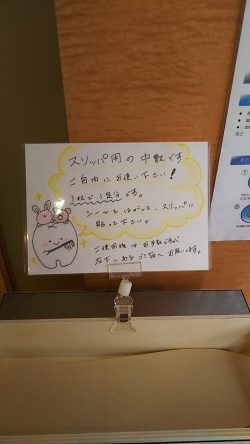 スリッパ用の中敷です
ご自由にお使い下さい!
1枚で1足分です。
シールをはがして、スリッパに
貼って下さい。
ご使用後は お手数ですが
左下にあるゴミ箱へ お願いします。